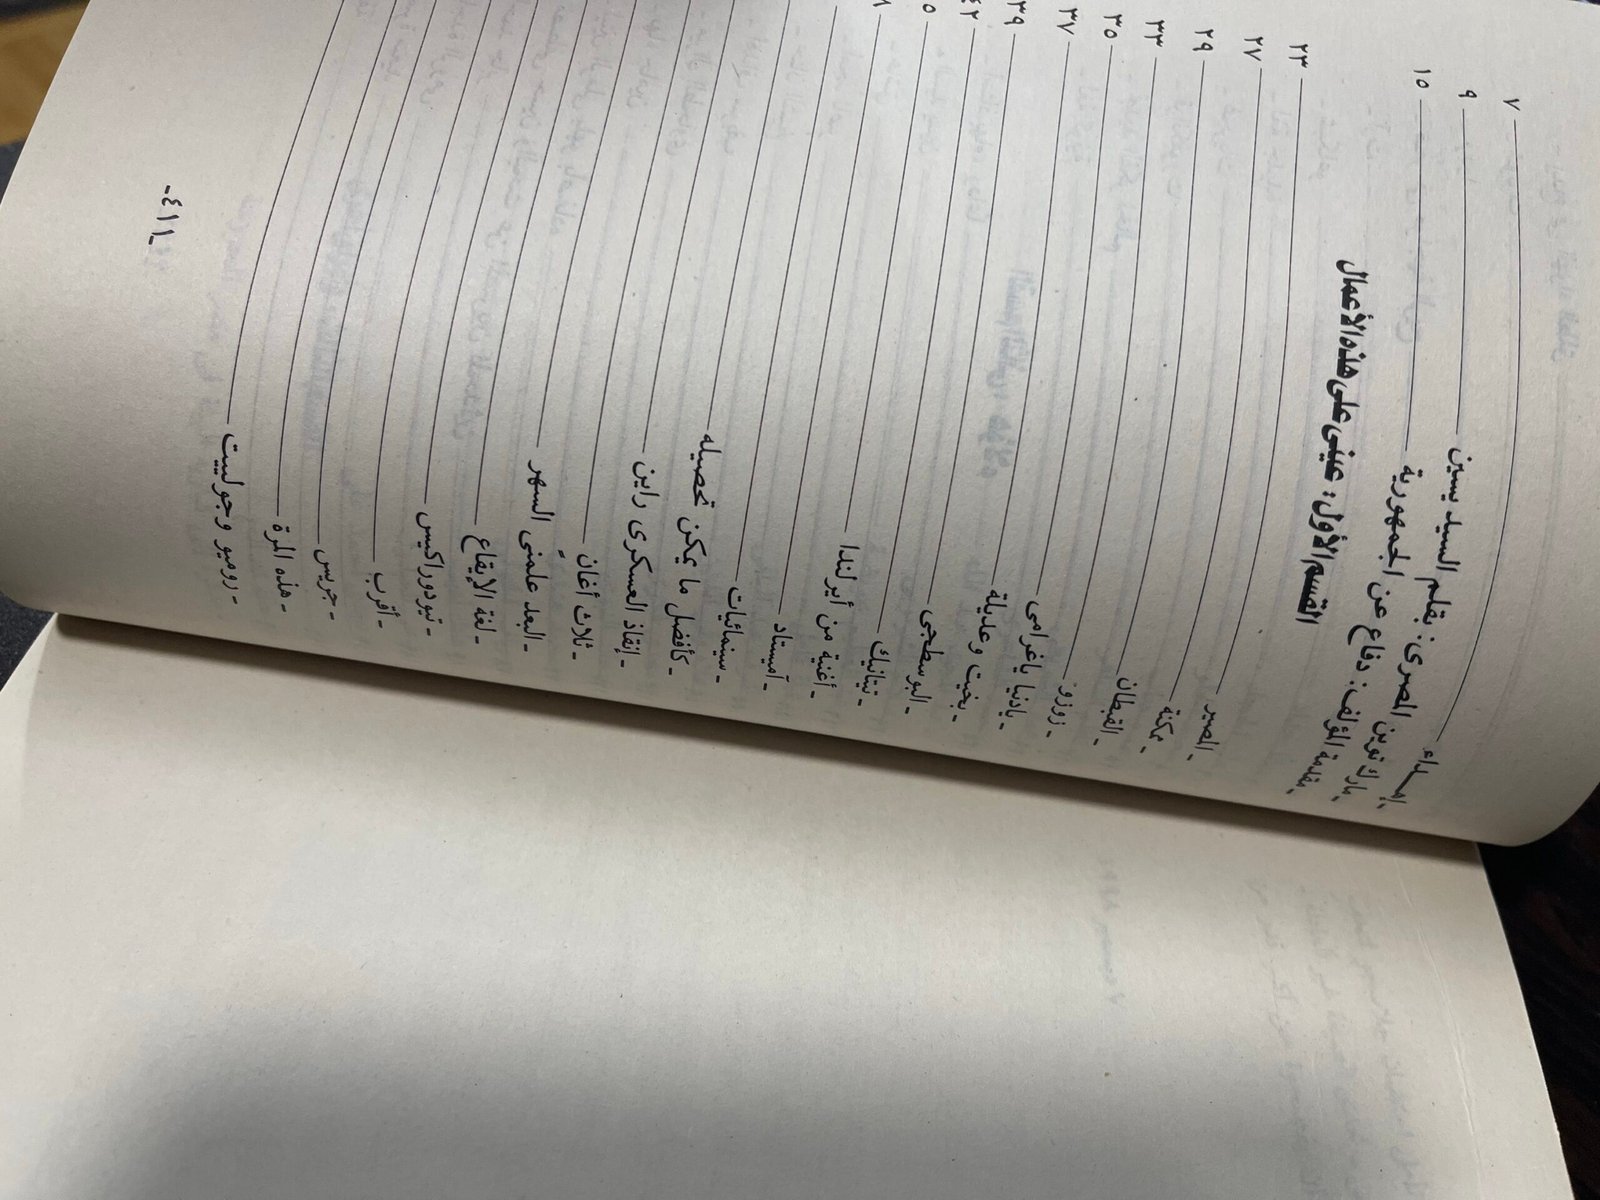 - إهـــداء ٧
- مارك توين المصرى: بقلم السيد يسين ٩
- مقدمة المؤلف: دفاع عن الجمهورية ١٥
القسم الأول: عينى على هذه الأعمال
- المصير ٢٣
- ممكنة ٢٧
- القبطان ٢٩
- زوزو ٣٣
- يادنيا ياغرامى ٣٥
- بخيت وعديلة ٣٧
- البوسطجى ٣٩
- تيتانيك ٤٢
- أغنية من أيرلندا
- آميستاد
- سينمائيات
- كأفضل ما يمكن تحصيله
- إنقاذ العسكرى راين
- ثلاث أغانٍ
- البعد علمنى السهر
- لغة الإيقاع
- تيودوراكيس
- أقرب
- جريس
- هذه المرة
- روميو وجولييت
-٤١١-